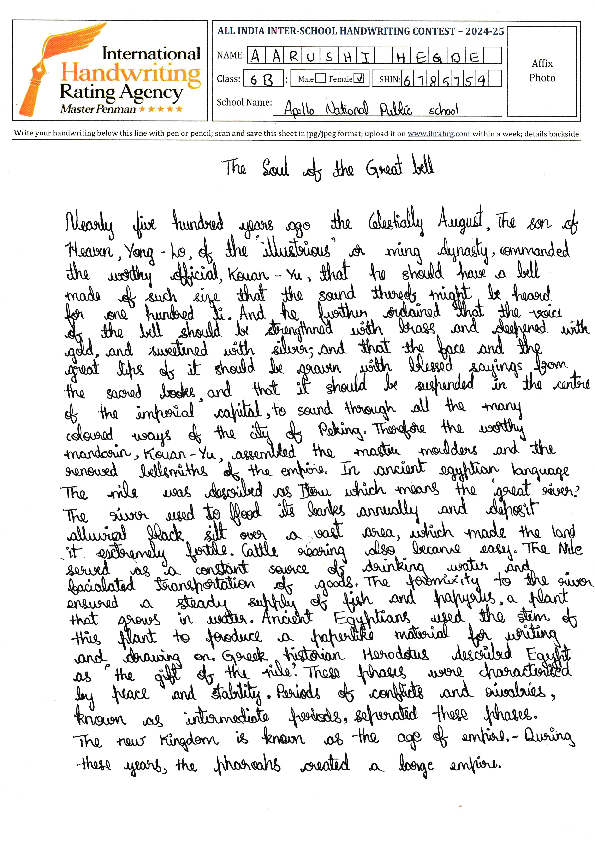 International
Handwriting
Rating Agency
Master Penman ★★★★★
ALL INDIA INTER-SCHOOL HANDWRITING CONTEST – 2024-25
NAME AARUSHI HEGDE
Class: 6B : Male Female ✓ SHIN: 6785754
School Name: Apollo National Public school
Affix
Photo
Write your handwriting below this line with pen or pencil; scan and save this sheet in jpg/jpeg format; upload it on www.ihrahrg.com within a week; details backside
The Soul of the Great bell
Nearly five hundred years ago the Celestially August, The son of
Heaven, Yong-Lo, of the "illustrious" or ming dynasty, commanded
the worthy official, Kouan-Yu, that he should have a bell
made of such size that the sound thereof might be heard
for one hundred li. And he further ordained that the voice
of the bell should be strengthned with brass, and deepened with
gold, and sweetined with silver; and that the face and the
great lips of it should be graven with blessed sayings from
the sacred books, and that it should be suspended in the centre
of the imperial capital, to sound through all the many
coloured ways of the city of Peking. Therefore the worthy
mandarin, Kouan-Yu, assembled the master moulders and the
renowed bellsmiths of the empire. In ancient egyptian language
The nile was described as Iteru which means the 'great river'.
The river used to flood its banks annually and deposit
alluvial black silt over a vast area, which made the land
it extremely fertile. Cattle rearing also became easy. The Nile
served as a constant source of drinking water and
facialated transportation of goods. The formixity to the river
ensured a steady supply of fish and papyrus, a plant
that grows in water. Ancient Egyptians used the stem of
this plant to produce a paperlike material for writing
and drawing on. Greek historian Herodotus described Egypt
as "the gift of the nile". These phases were characterised
by peace and stability. Periods of conflicts and rivalries,
known as intermediate periods, seperated these phases.
The new Kingdom is known as the age of empire.- During
these years, the pharoahs created a large empire.